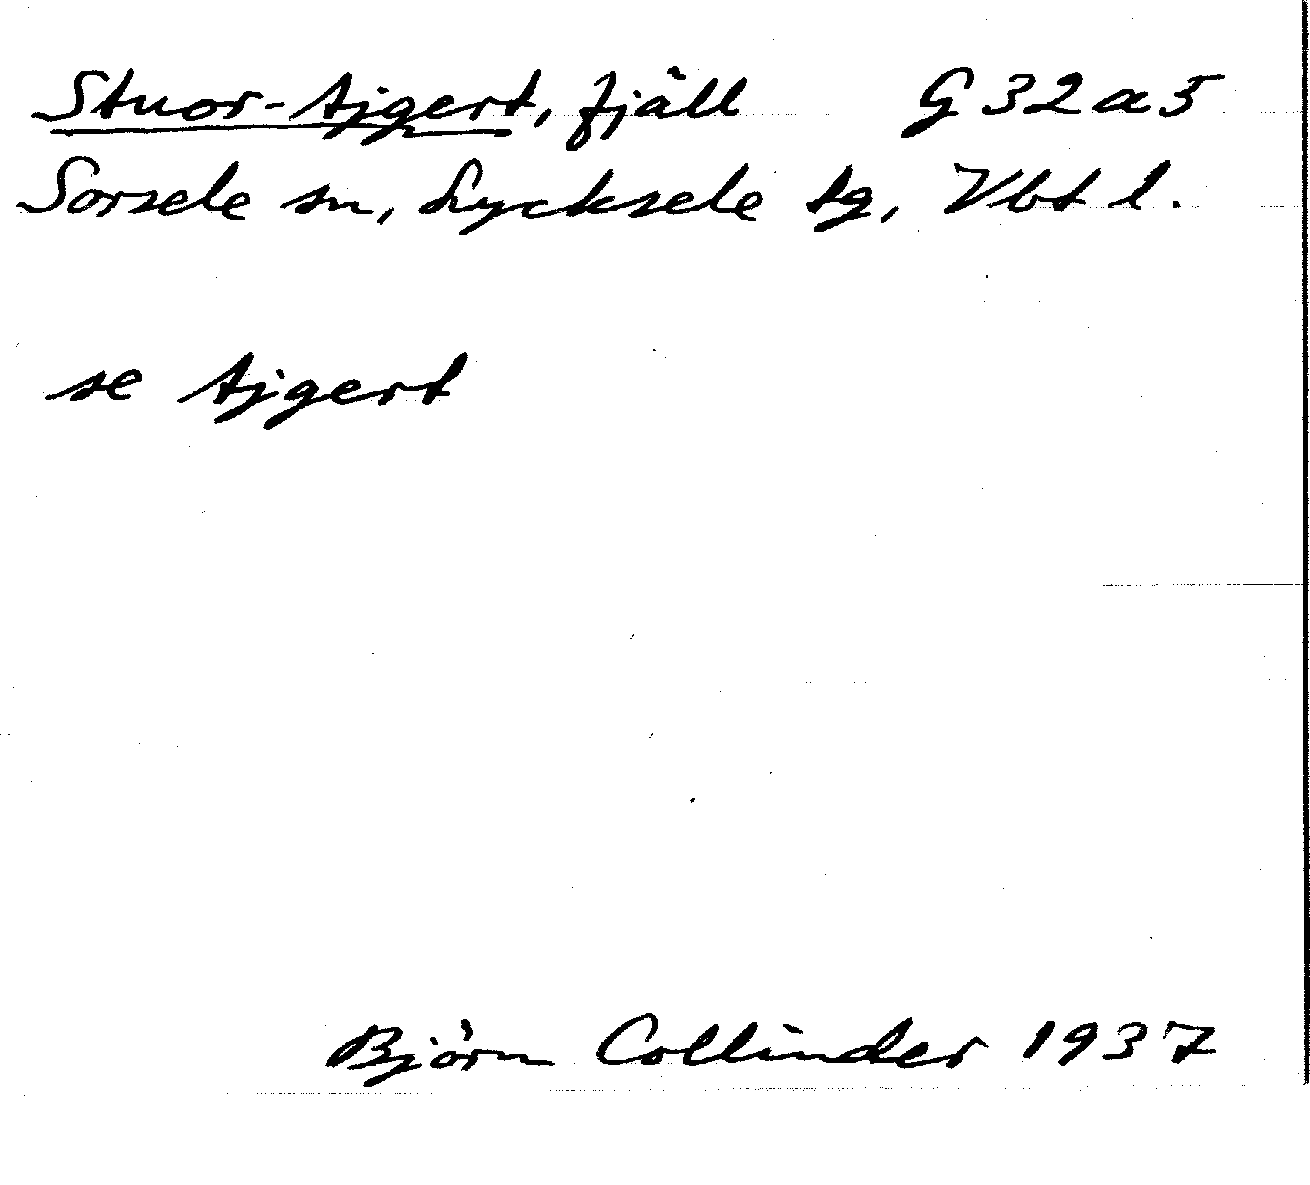 Stuor-Ajgert, fjäll G 32 a 5
Sorsele sn, Lycksele tg, Vbt l.
se Ajgert
Björn Collinder 1937